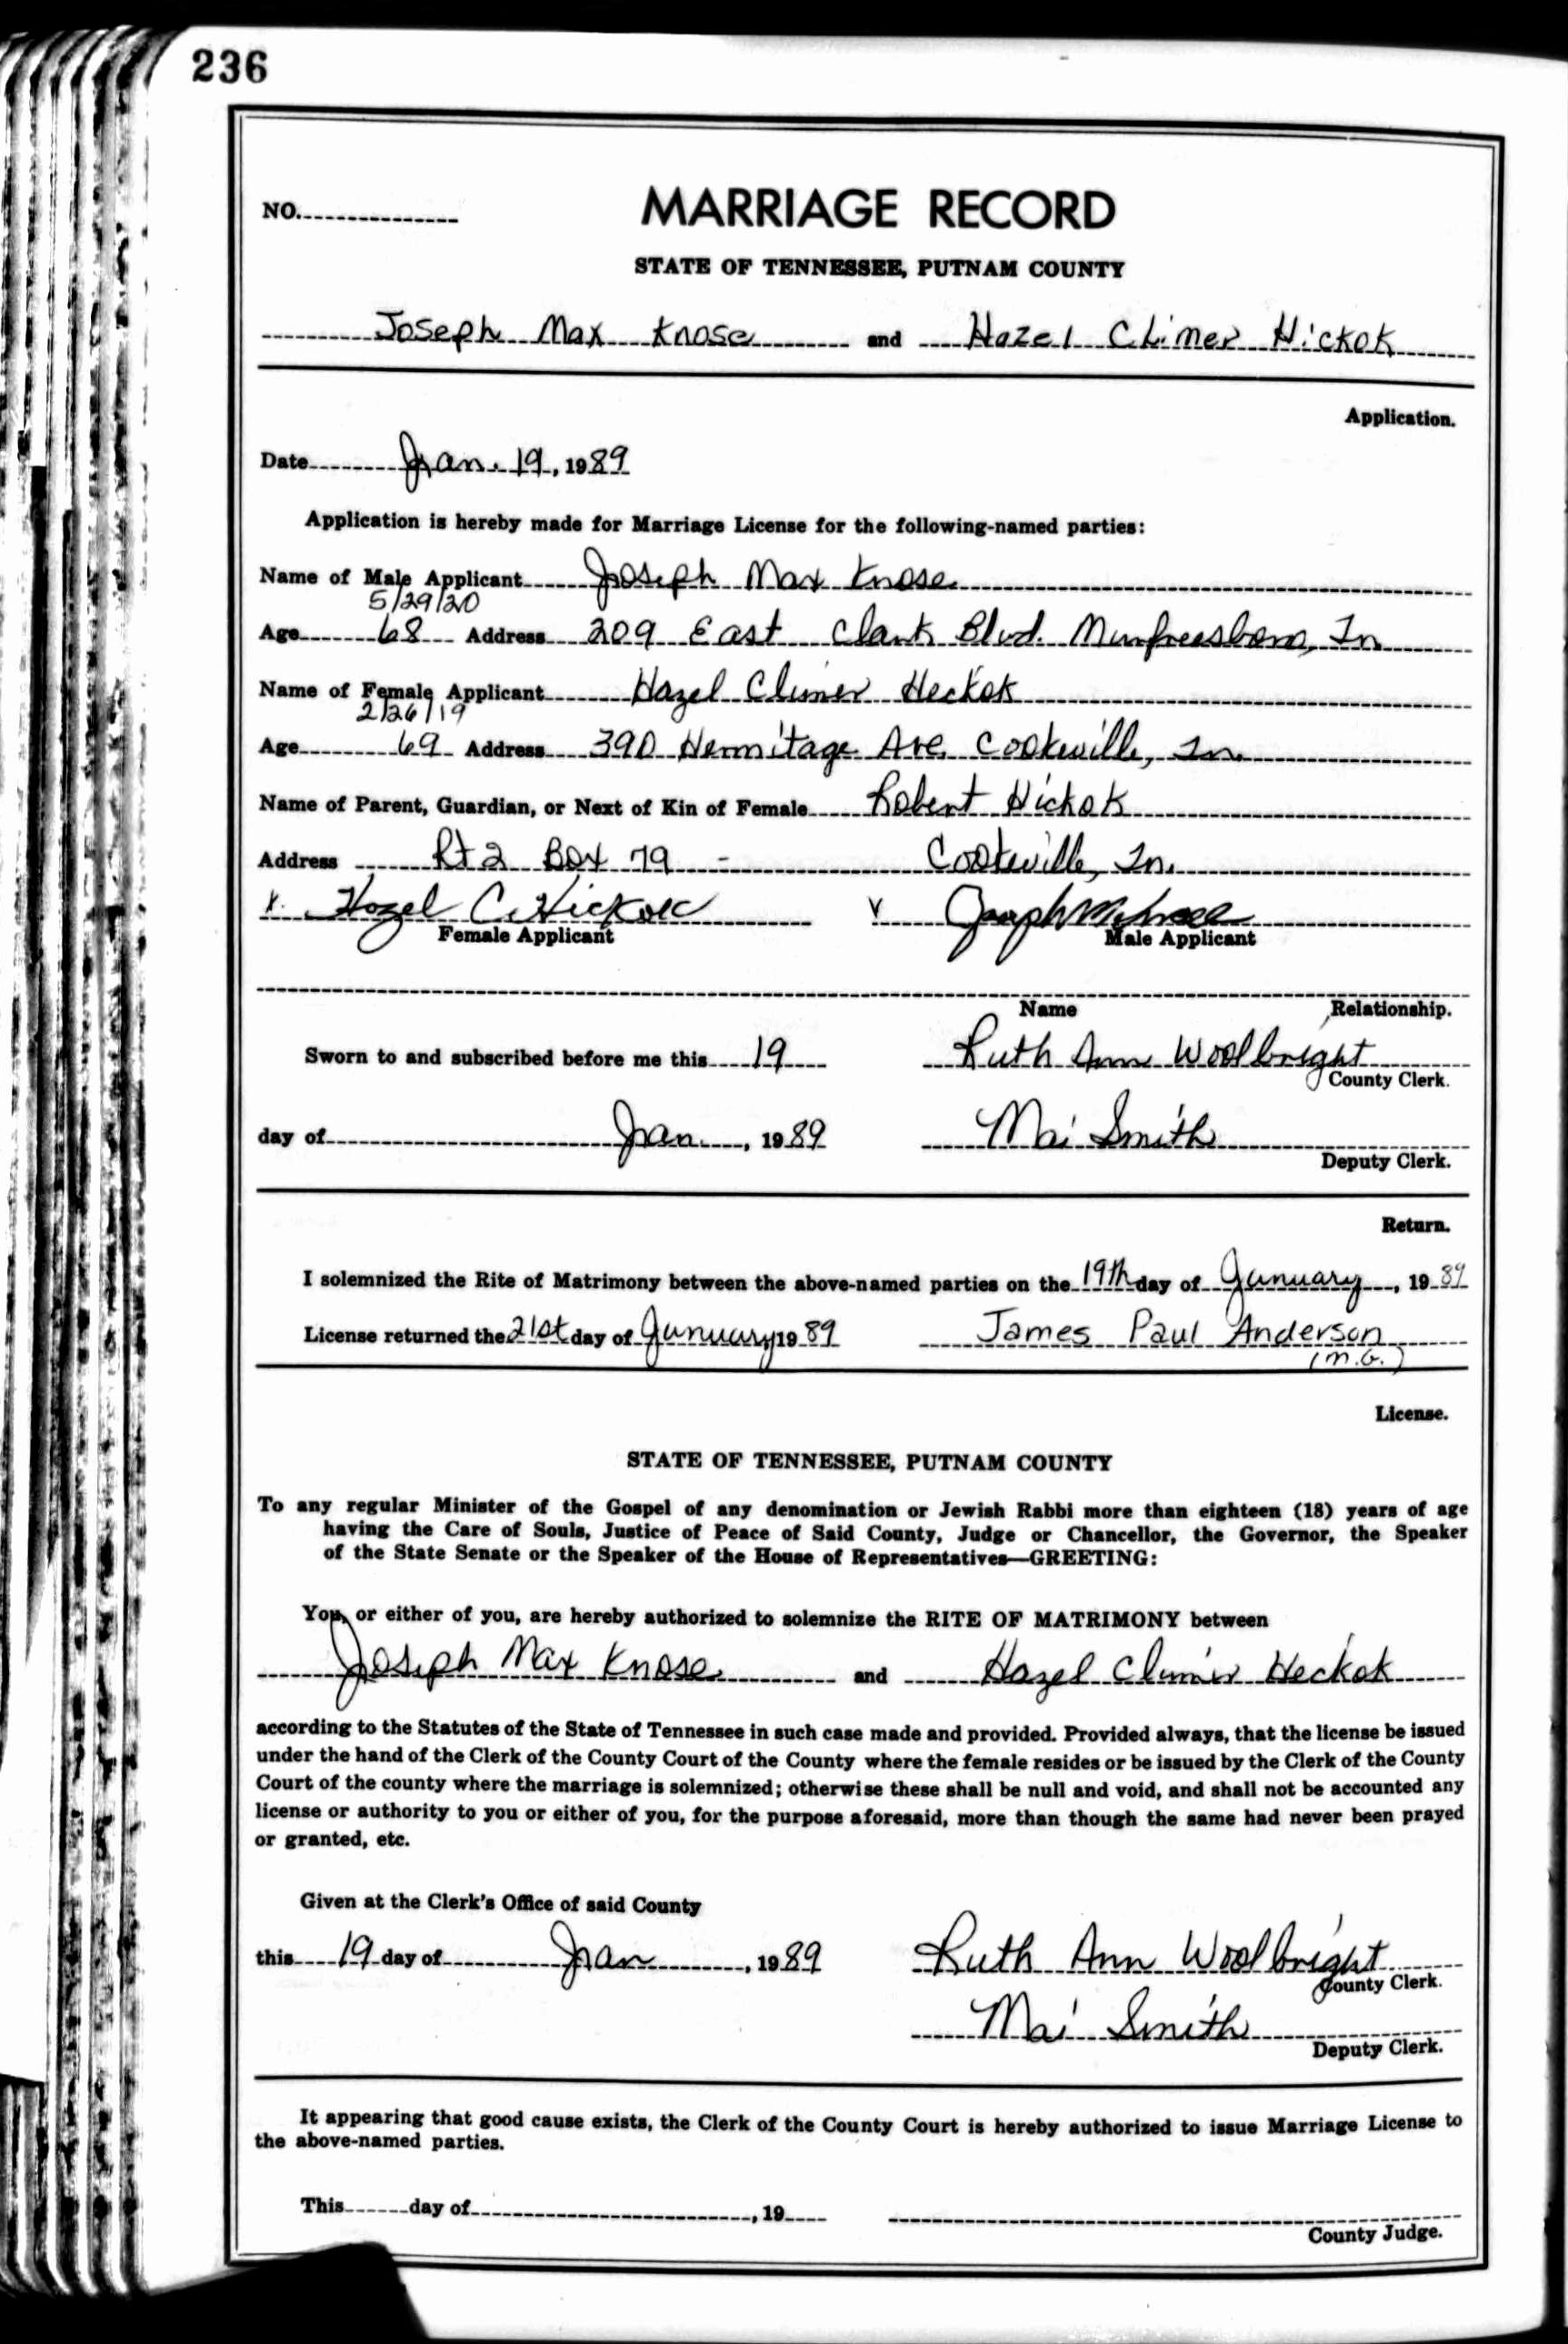 236
NO.
MARRIAGE RECORD
STATE OF TENNESSEE, PUTNAM COUNTY
Joseph Max Knose and Hazel Climer Hickok
Application.
Date Jan. 19, 1989
Application is hereby made for Marriage License for the following-named parties:
Name of Male Applicant Joseph Max Knose
5/29/20
Age 68 Address 209 East Clark Blvd. Murfreesboro, Tn.
Name of Female Applicant Hazel Climer Hickok
2/26/19
Age 69 Address 390 Hermitage Ave. Cookeville, Tn.
Name of Parent, Guardian, or Next of Kin of Female Robert Hickok
Address Rt 2 Box 79 - Cookeville, Tn.
x. Hazel C. Hickok v Joseph M. Knose
Female Applicant Male Applicant
Name Relationship.
Sworn to and subscribed before me this 19 Ruth Ann Woolbright
County Clerk.
day of Jan., 1989 Mai Smith
Deputy Clerk.
Return.
I solemnized the Rite of Matrimony between the above-named parties on the 19th day of January, 1989
License returned the 21st day of January, 1989 James Paul Anderson
(M.G.)
License.
STATE OF TENNESSEE, PUTNAM COUNTY
To any regular Minister of the Gospel of any denomination or Jewish Rabbi more than eighteen (18) years of age
having the Care of Souls, Justice of Peace of Said County, Judge or Chancellor, the Governor, the Speaker
of the State Senate or the Speaker of the House of Representatives—GREETING:
You, or either of you, are hereby authorized to solemnize the RITE OF MATRIMONY between
Joseph Max Knose and Hazel Climer Hickok
according to the Statutes of the State of Tennessee in such case made and provided. Provided always, that the license be issued
under the hand of the Clerk of the County Court of the County where the female resides or be issued by the Clerk of the County
Court of the county where the marriage is solemnized; otherwise these shall be null and void, and shall not be accounted any
license or authority to you or either of you, for the purpose aforesaid, more than though the same had never been prayed
or granted, etc.
Given at the Clerk's Office of said County
this 19 day of Jan, 1989 Ruth Ann Woolbright
County Clerk.
Mai Smith
Deputy Clerk.
It appearing that good cause exists, the Clerk of the County Court is hereby authorized to issue Marriage License to
the above-named parties.
This day of , 19
County Judge.